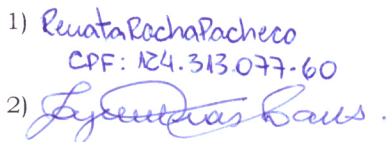 1) Renata Rocha Pacheco
CPF: 124.313.077-60
2)